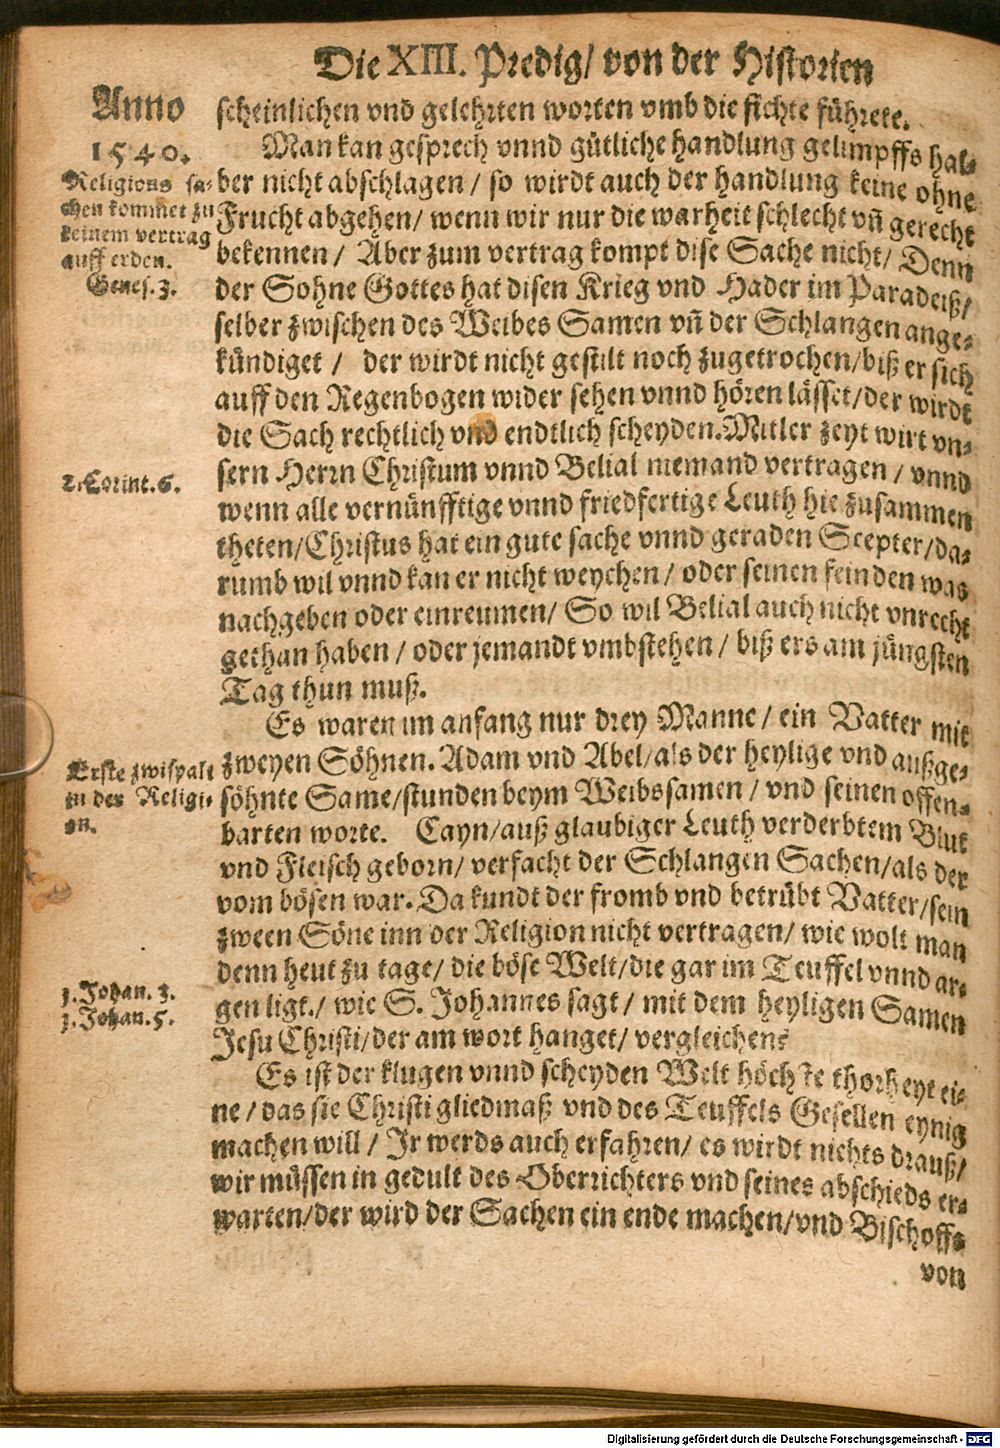 Die XIII. Predig/ von der Historien
Anno
1540.
Religions sa-
chen kommet zu
keinem vertrag
auff erden.
Genes. 3.
scheinlichen vnd gelehrten worten vmb die fichte führete.
Man kan gesprech vnnd gütliche handlung gelimpffs hal-
ber nicht abschlagen / so wirdt auch der handlung keine ohne
Frucht abgehen/ wenn wir nur die warheit schlecht vn̄ gerecht
bekennen / Aber zum vertrag kompt dise Sache nicht/ Denn
der Sohne Gottes hat disen Krieg vnd Hader im Paradeiß/
selber zwischen des Weibes Samen vn̄ der Schlangen ange-
kündiget / der wirdt nicht gestilt noch zugetrochen/biß er sich
auff den Regenbogen wider sehen vnnd hören lässet/der wirdt
die Sach rechtlich vnd endtlich scheyden. Mitler zeyt wirt vn-
2. Corint. 6.
sern Herrn Christum vnnd Belial niemand vertragen / vnnd
wenn alle vernünfftige vnnd friedfertige Leuth hie zusammen
theten/Christus hat ein gute sache vnnd geraden Scepter/da-
rumb wil vnnd kan er nicht weychen / oder seinen feinden was
nachgeben oder einreumen/ So wil Belial auch nicht vnrecht
gethan haben / oder jemandt vmbstehen / biß ers am jüngsten
Tag thun muß.
Es waren im anfang nur drey Manne / ein Vatter mit
Erste zwispalt
in der Religi-
on.
zweyen Söhnen. Adam vnd Abel/als der heylige vnd außge-
söhnte Same/stunden beym Weibssamen / vnd seinen offen-
barten worte. Cayn/auß glaubiger Leuth verderbtem Blut
vnd Fleisch geborn/ verfacht der Schlangen Sachen/als der
vom bösen war. Da kundt der fromb vnd betrübt Vatter/sein
zween Söne inn der Religion nicht vertragen/ wie wolt man
denn heut zu tage/ die böse Welt/die gar im Teuffel vnnd ar-
1. Johan. 3.
1. Johan. 5.
gen ligt./ wie S. Johannes sagt / mit dem heyligen Samen
Jesu Christi/der am wort hanget/ vergleichen?
Es ist der klugen vnnd scheyden Welt höchste thorheyt ei-
ne / das sie Christi gliedmaß vnd des Teuffels Gesellen eynig
machen will / Ir werds auch erfahren/ es wirdt nichts drauß/
wir müssen in gedult des Oberrichters vnd seines abschieds er-
warten/der wird der Sachen ein ende machen/vnd Bischoffs
von
Digitalisierung gefördert durch die Deutsche Forschungsgemeinschaft - DFG